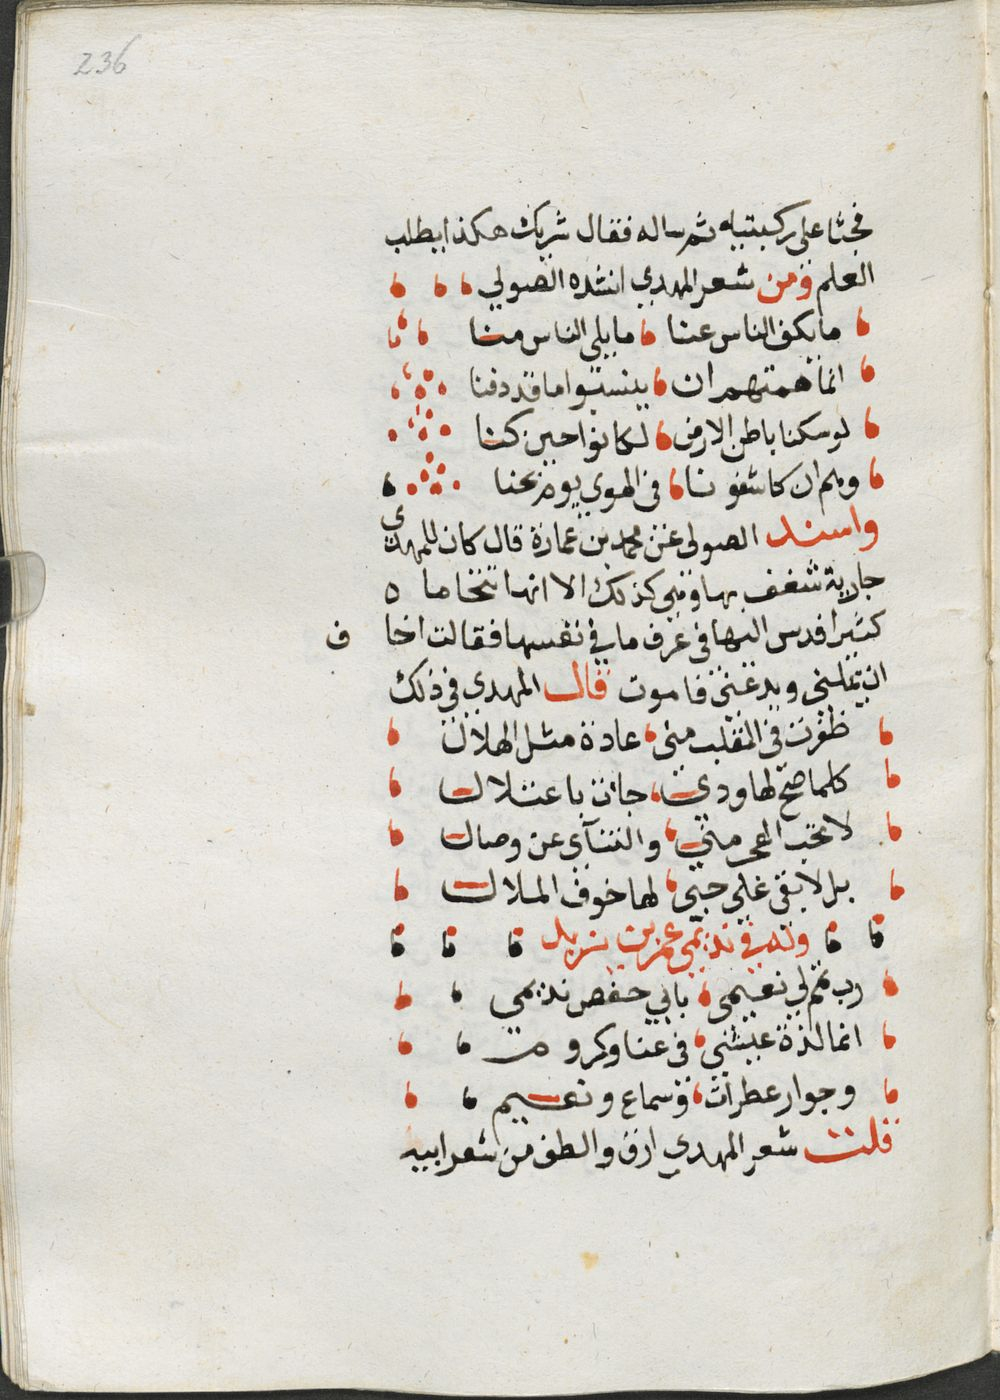 236
فجثا على ركبتيه ثم ساله فقال شريك هكذا يطلب
العلم ومن شعر المهدي انشده الصولي
ما يكف الناس عنا ما يلي الناس منا
انما همتهم ان ينبشوا ما قد دفنا
لو سكنا باطن الارض لكانوا حين كنا
وهم ان كاشفونا في الهوي يوم
واسند الصولي عن محمد بن عمارة قال كان للمهدي
جارية شغف بها وهي كذلك الا انها تتحاما ه
كثيرا فدس اليها في عرف ما في نفسها فقالت اخا ف
ان يملني ويدعني فاموت قال المهدي في ذلك
ظفرت في القلب مني عادة مثل الهلال
كلما صح لها ودي جات باعتلال
لا لحب الهجر مني والتنآى عن وصال
بل لابقى على حبي لها خوف الملال
وله في نديمي عمر بن بزيد
رب تمم لي نعيمي بابي حفص نديمي
انما لذة عيشي في غنا وكروم
وجوار عطرات وسماع ونعيم
قلت شعر المهدي ارق والطف من شعر ابيه